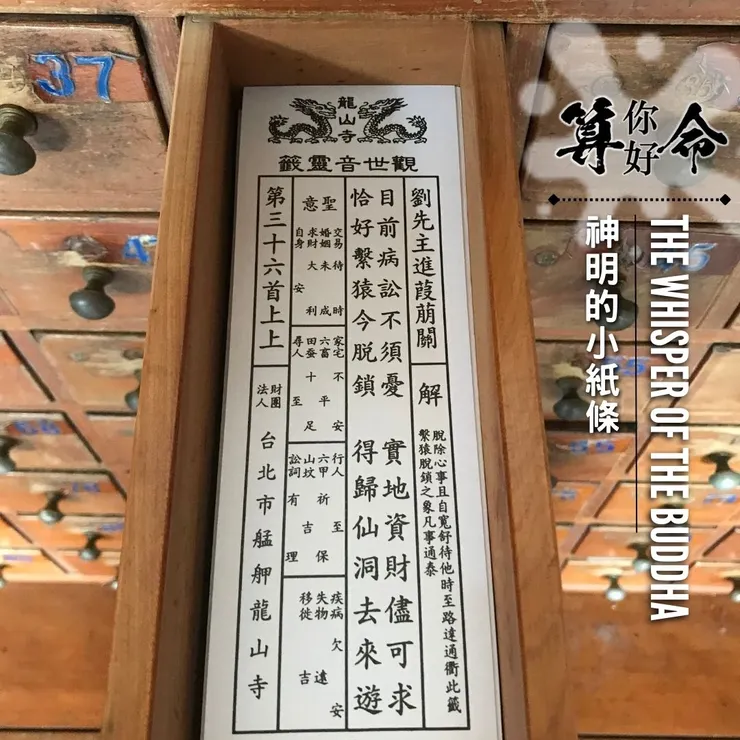 37
龍山寺
觀世音靈籤
劉先主進葭萠關
解
脫除心事且自寬舒待他時至路達通衢此籤
繫猿脫鎖之象凡事通泰
目前病訟不須憂 實地資財儘可求
恰好繫猿今脫鎖 得歸仙洞去來遊
聖意
交易待時
婚姻未成
求財大利
自身安
家宅不安
六畜平
田蚕十足
尋人至
行人至
六甲祈保
山墳吉
訟詞有理
疾病欠安
失物遠
移徙吉
第三十六首上上
財團法人
台北市艋舺龍山寺
算你好命
THE WHISPER OF THE BUDDHA
神明的小紙條